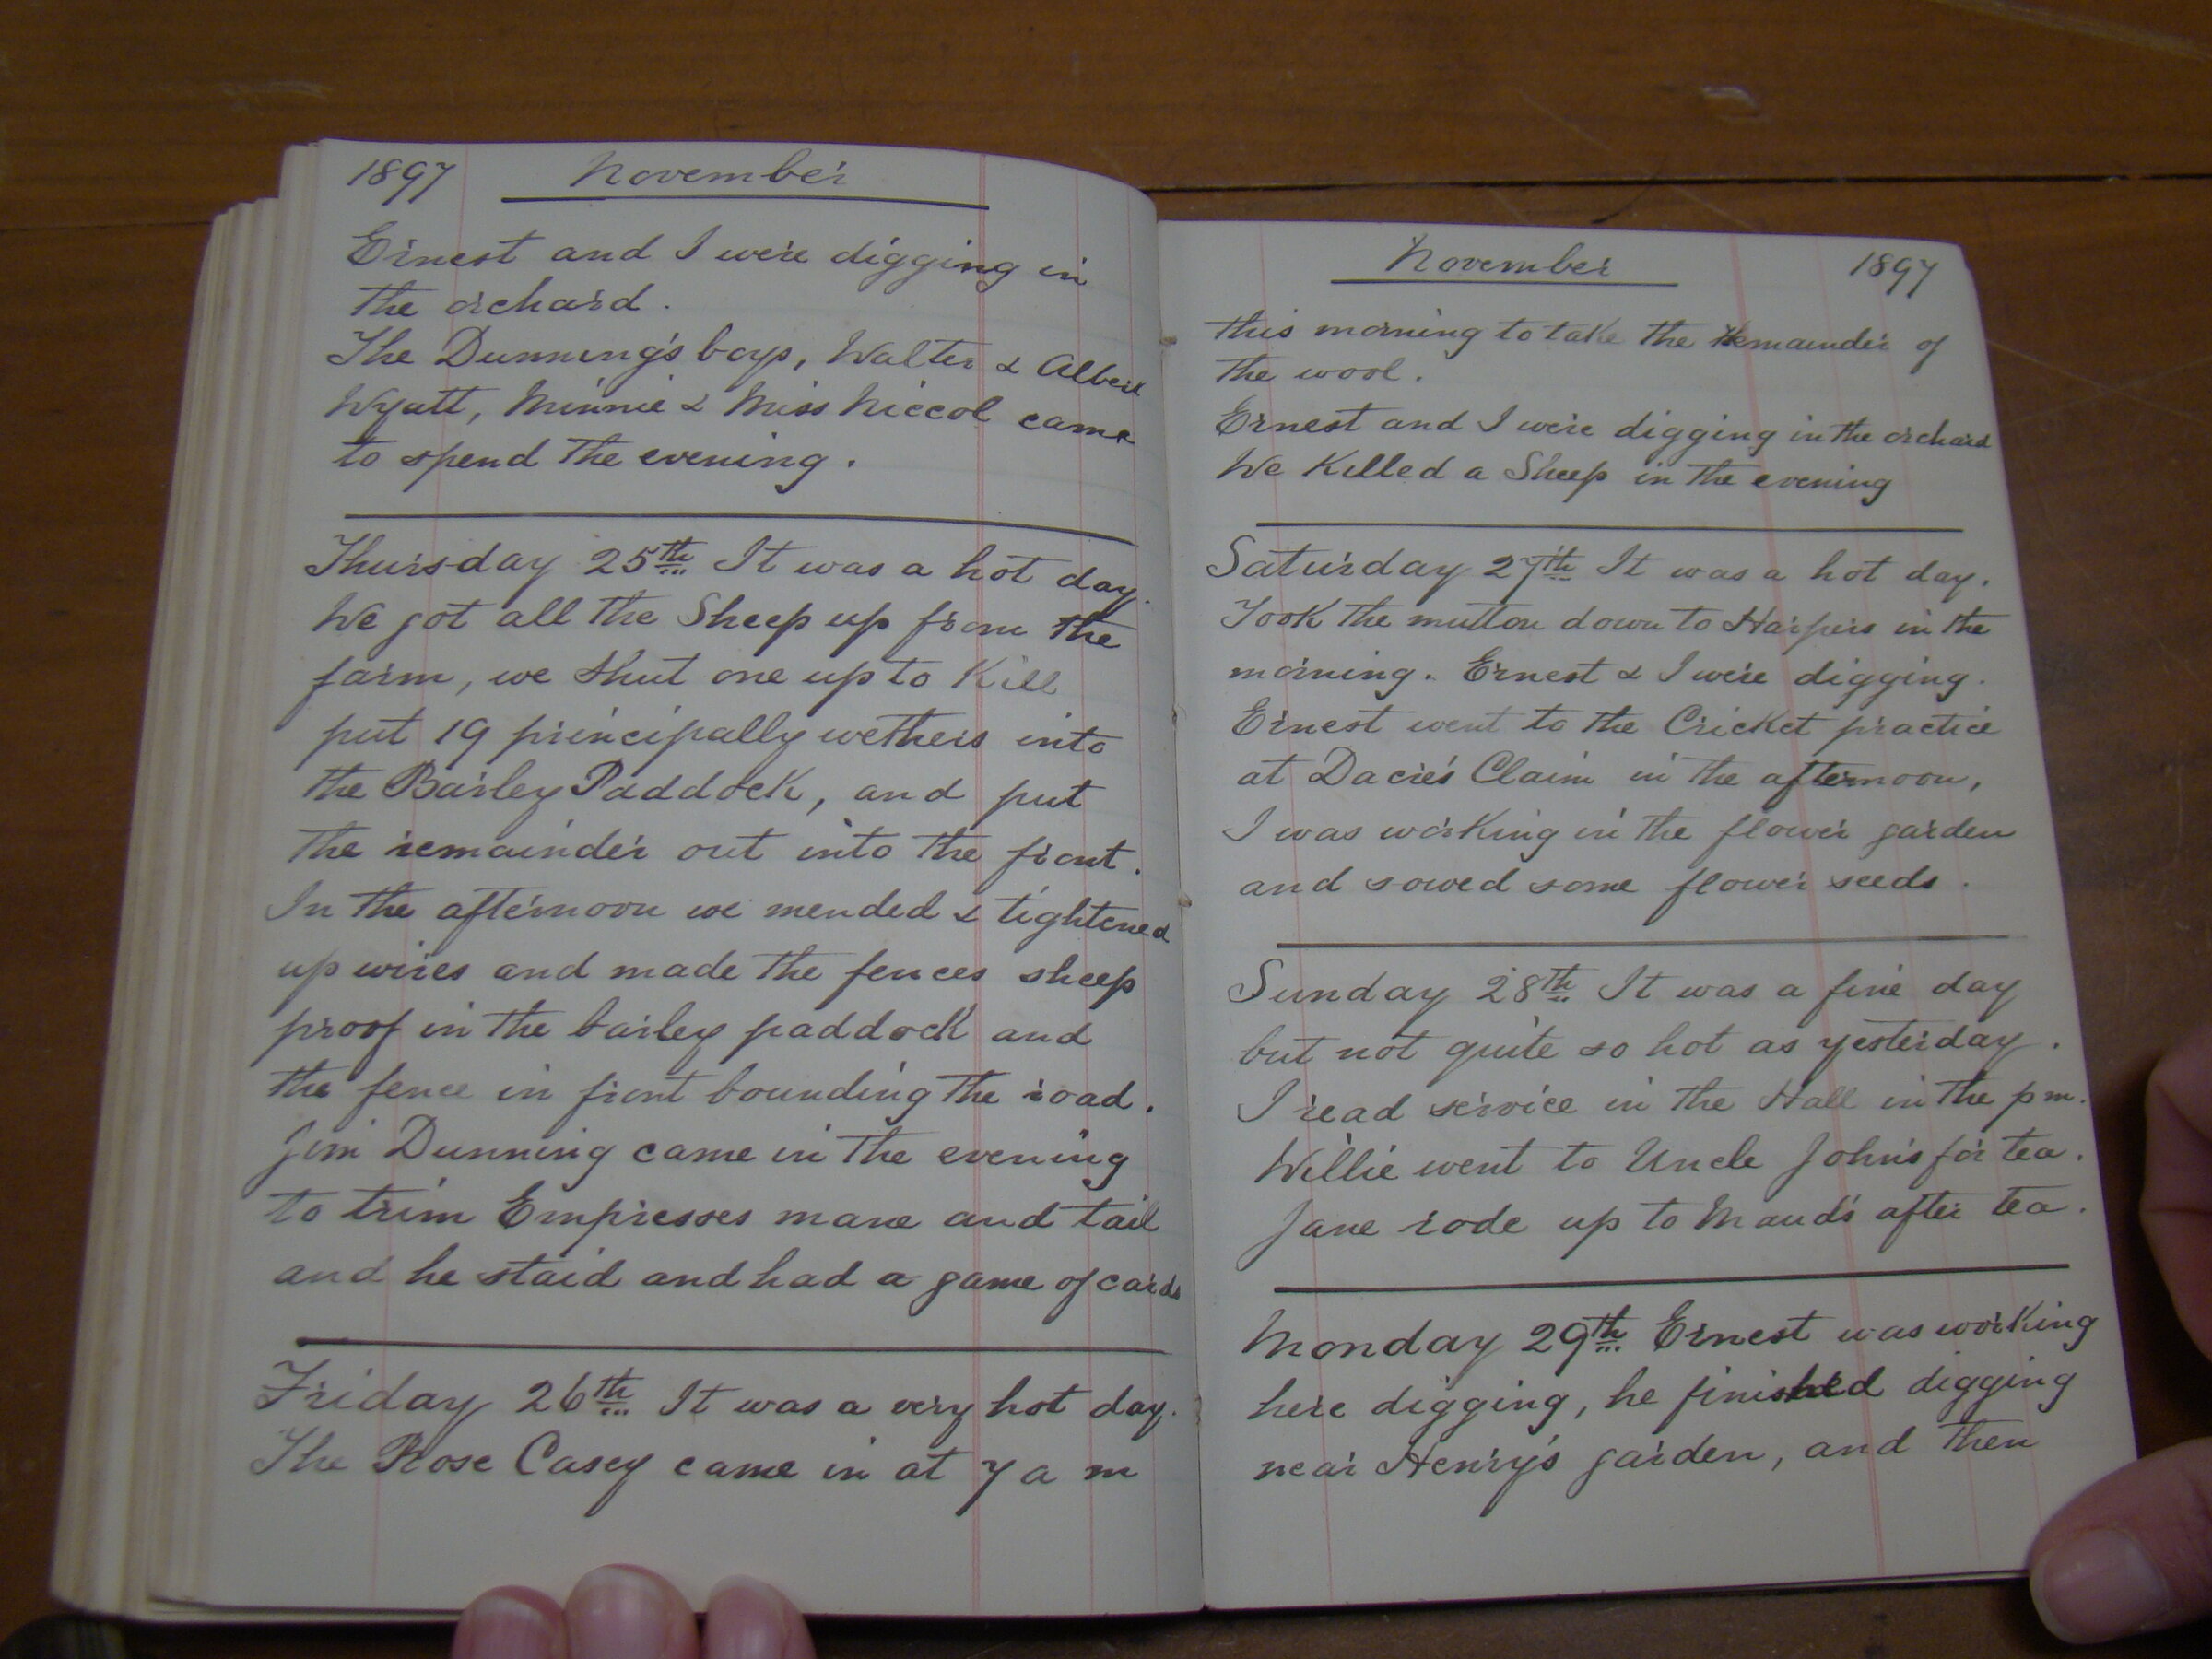 1897 November
Ernest and I were digging in
the orchard.
The Dunning's boys, Walter & Albert
Wyatt, Minnie & Miss Niccol came
to spend the evening.
Thursday 25th It was a hot day.
We got all the Sheep up from the
farm, we shut one up to Kill
put 19 principally wethers into
the Barley Paddock, and put
the remainder out into the front.
In the afternoon we mended & tightened
up wires and made the fences sheep
proof in the barley paddock and
the fence in front bounding the road.
Jim Dunning came in the evening
to trim Empresses mane and tail
and he staid and had a game of cards
Friday 26th It was a very hot day.
The Rose Casey came in at 7 a m
November 1897
this morning to take the remainder of
the wool.
Ernest and I were digging in the orchard
We Killed a Sheep in the evening
Saturday 27th It was a hot day.
Took the mutton down to Harpers in the
morning. Ernest & I were digging.
Ernest went to the Cricket practice
at Dacre's Claim in the afternoon,
I was working in the flower garden
and sowed some flower seeds.
Sunday 28th It was a fine day
but not quite so hot as yesterday.
I read service in the Hall in the p m.
Willie went to Uncle John's for tea.
Jane rode up to Maud's after tea.
Monday 29th Ernest was working
here digging, he finished digging
near Henry's garden, and then